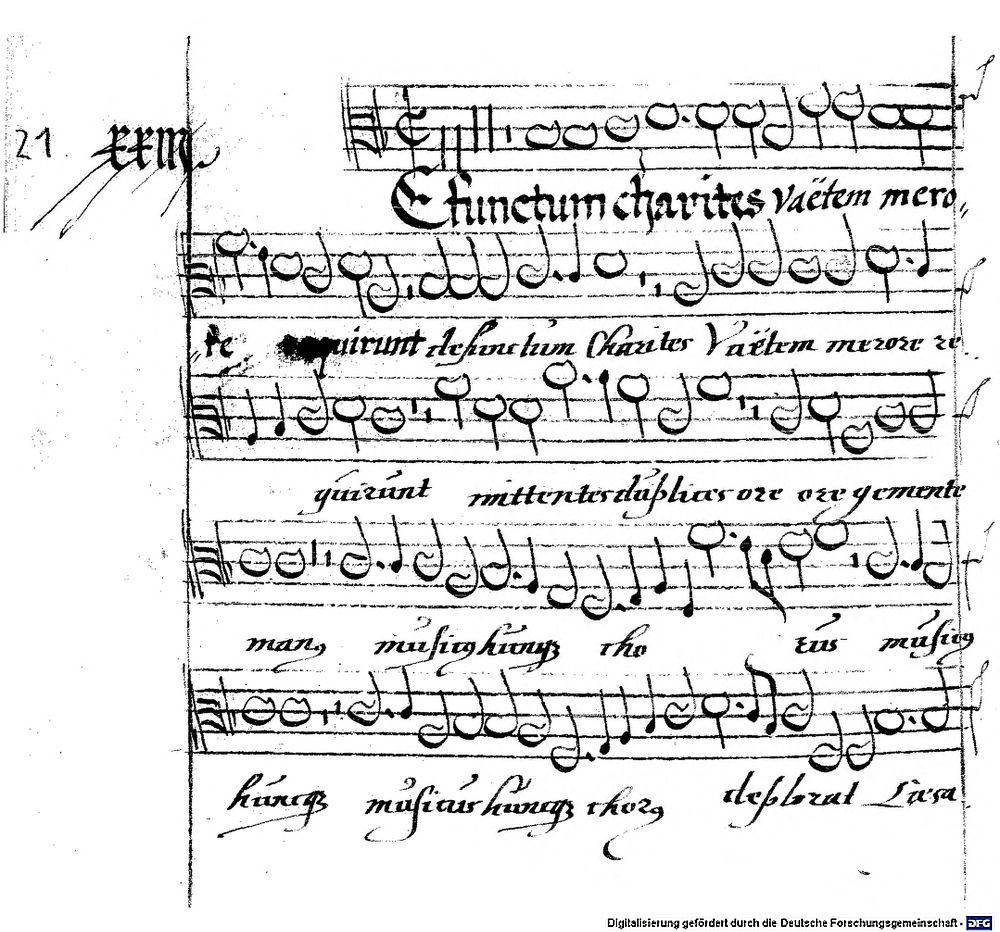 21 XXIII
Efunctum charites Vaëtem mero„
„re quirunt defunctum Charites Vaëtem merore re
quirunt mittentes duplices ore ore gemente
manꝯ musicꝯ hunqꝫ cho rus musicꝯ
huncqꝫ musicus huncqꝫ chorꝯ deplorat Læsa
Digitalisierung gefördert durch die Deutsche Forschungsgemeinschaft - DFG